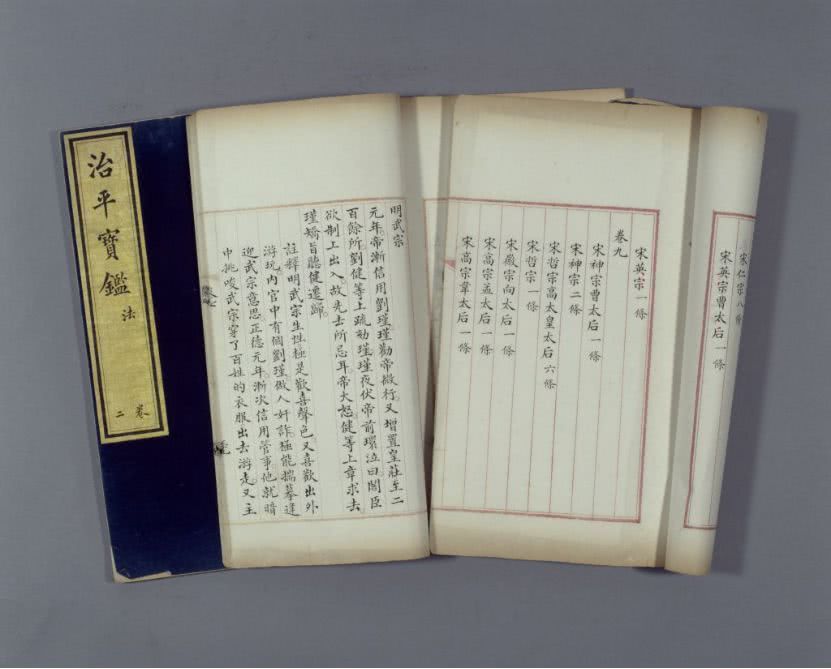 治平寶鑑 法
卷二
宋仁宗八條
宋英宗曹太后一條
宋英宗一條
卷九
宋神宗曹太后一條
宋神宗二條
宋哲宗高太皇太后六條
宋哲宗一條
宋徽宗向太后一條
宋高宗孟太后一條
宋高宗韋太后一條
明武宗
元年帝漸信用劉瑾瑾勸帝微行又增置皇莊至二
百餘所劉健等上疏劾瑾瑾夜伏帝前環泣曰閣臣
欲制上出入故先去所忌耳帝大怒健等上章求去
瑾矯旨聽健遷歸
註釋明武宗生性極是歡喜聲色又喜歡出外
游玩內官中有個劉瑾做人奸詐極能揣摹逢
迎武宗意思正德元年漸次信用管事他就暗
中挑唆武宗穿了百姓的衣服出去游走又主